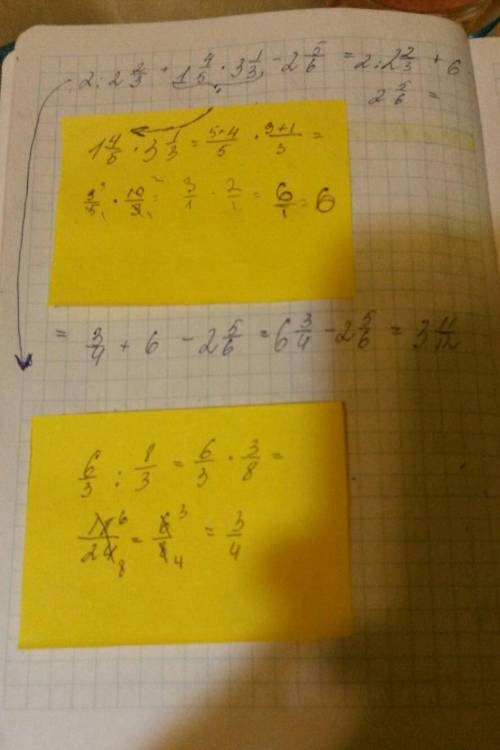 2 : 2 2/3 + 1 4/5 · 3 1/3 - 2 5/6 = 2 : 2 2/3 + 6
2 5/6 =
1 4/5 · 3 1/3 = 5+4/5 · 9+1/3 =
9³/5₁ · 10²/3₁ = 3/1 · 2/1 = 6/1 = 6
= 3/4 + 6 - 2 5/6 = 6 3/4 - 2 5/6 = 3 11/12
6/3 : 8/3 = 6/3 · 3/8 =
18⁶/24₈ = 6³/8₄ = 3/4